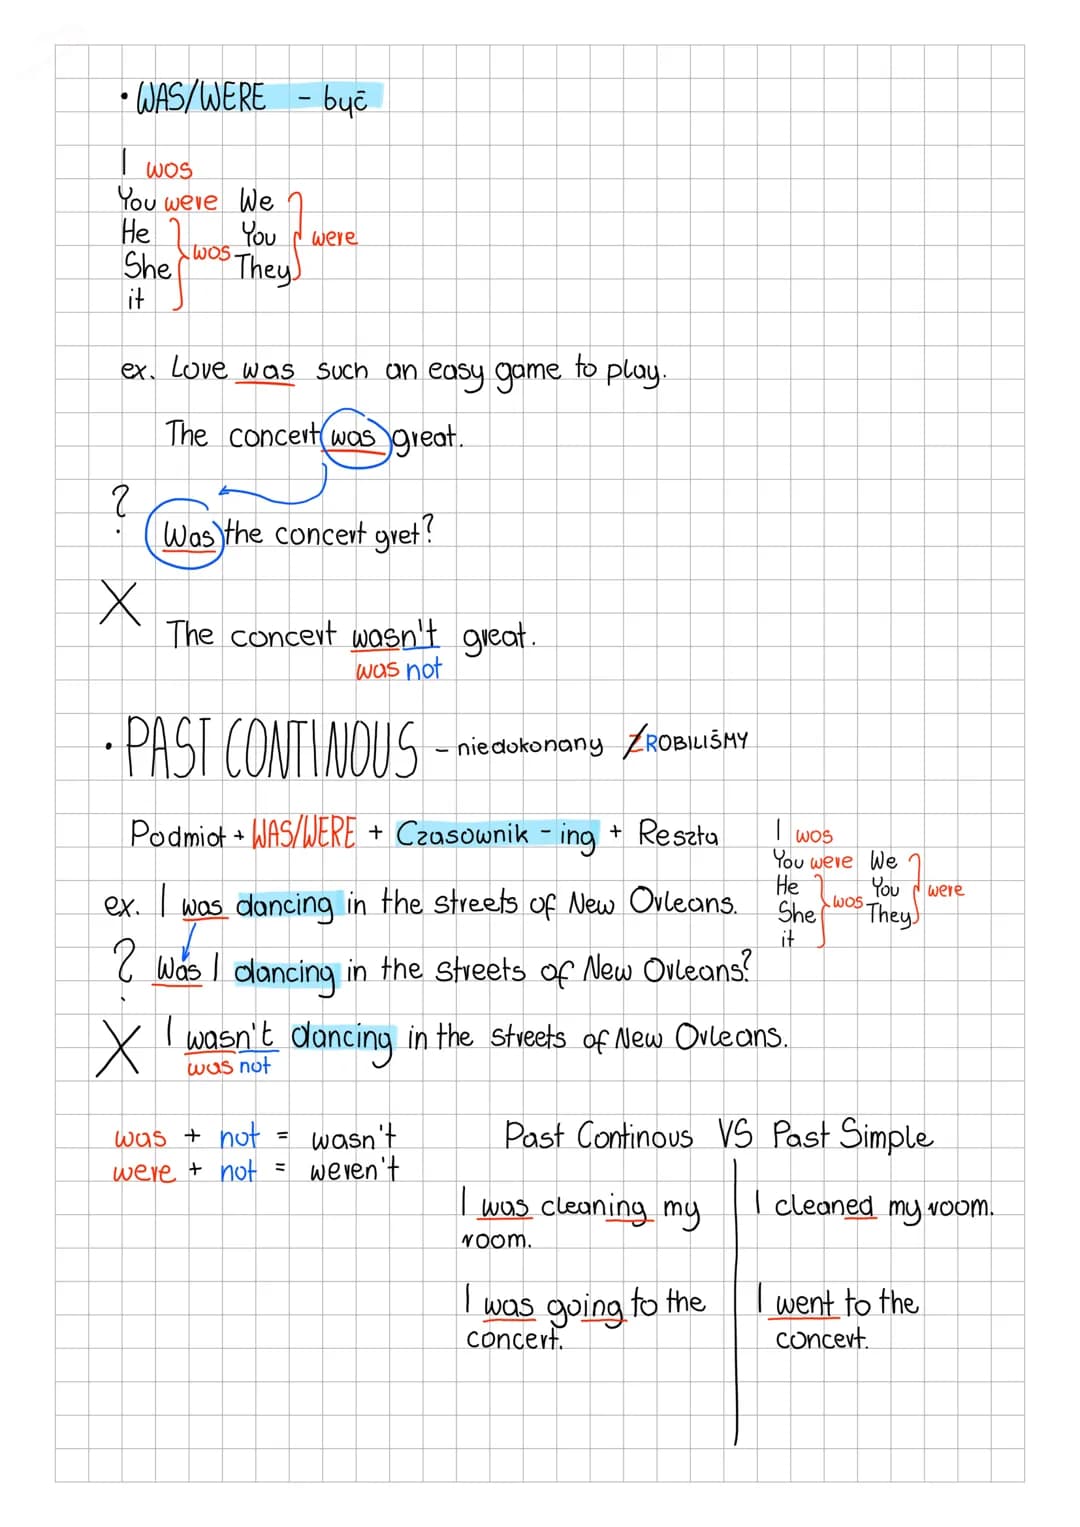 • WAS/WERE - być
I was
You were We
He You were
She was They
it
ex. Love was such an easy game to play.
The concert was great.
?
Was the concert gret?
X
The concert wasn't great.
was not
• PAST CONTINOUS - niedokonany ZROBILIŚMY
Podmiot + WAS/WERE + Czasownik - ing + Reszta
I was
You were We
He You were
She was They
it
ex. I was dancing in the streets of New Orleans.
? Was I dancing in the streets of New Orleans?
X I wasn't dancing in the streets of New Orleans.
was not
was + not = wasn't
were + not = weren't
Past Continous VS Past Simple
I was cleaning my
room.
I cleaned my room.
I was going to the
concert.
I went to the
concert.